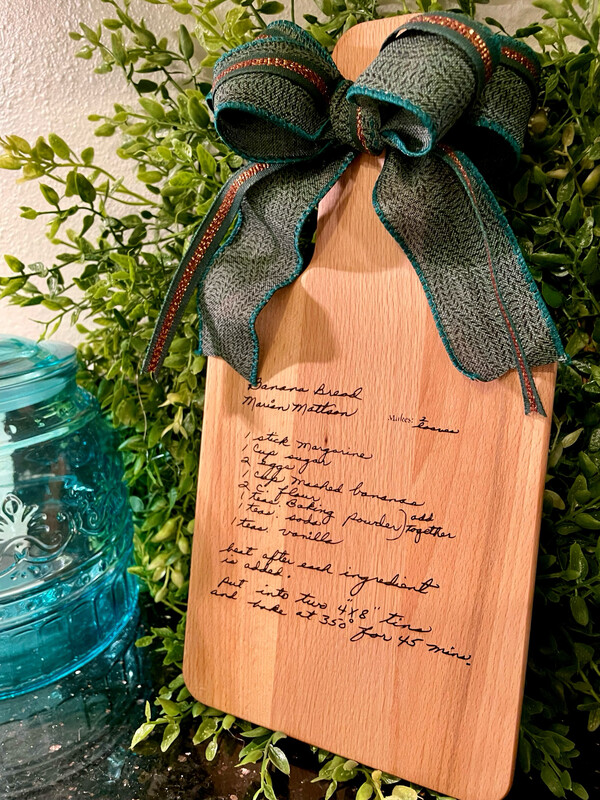 Banana Bread
Marian Mattson
Makes: 2 Loaves
1 stick Margarine
1 Cup sugar
2 eggs
1 Cup Mashed bananas
2 C. flour
1 teas. Baking powder) add
1 teas. soda) together
1 teas. vanilla
beat after each ingredient
is added.
Put into two 4"X8" tins
and bake at 350° for 45 mins.